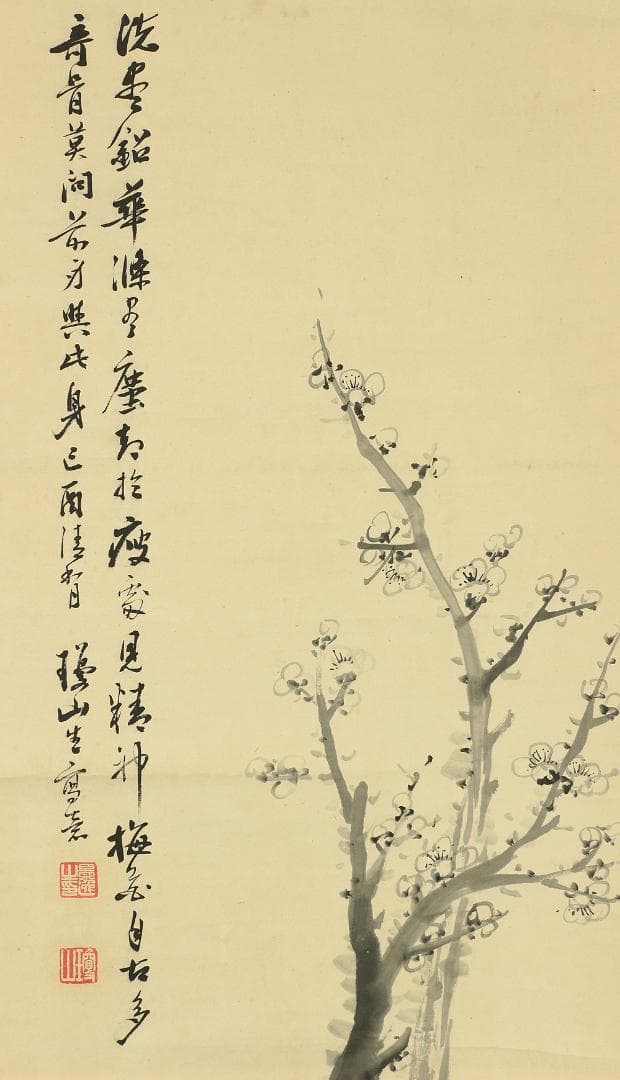 洗盡鉛華滌盡塵却於瘦處見精神梅花自古多
奇骨莫問前身與此身己酉清 瓊山生寫意